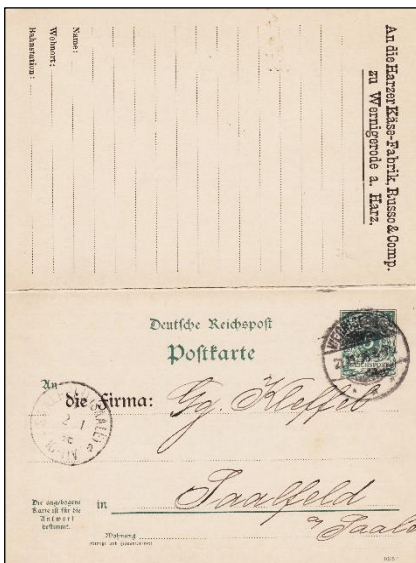 An die Harzer Käse-Fabrik, Russo & Comp.
zu Wernigerode a. Harz.
Name:
Wohnort:
Bahnstation:
Deutsche Reichspost
Postkarte
An
die Firma:
Gg. Kleffel
in
Saalfeld
a/Saale
Die angebogene
Karte ist für die
Antwort
bestimmt.
Wohnung